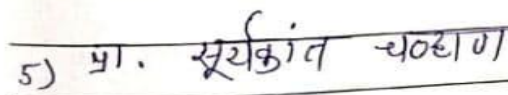 5) प्रा. सूर्यकांत चव्हाण